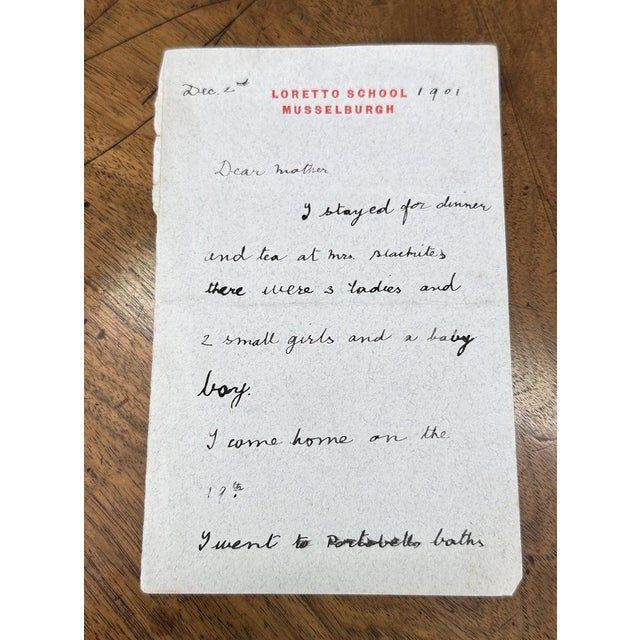 Dec. 2nd LORETTO SCHOOL 1901
MUSSELBURGH
Dear Mother
I stayed for dinner
and tea at Mrs.
there were 3 ladies and
2 small girls and a baby
boy.
I come home on the
19th.
I went to Portobello baths